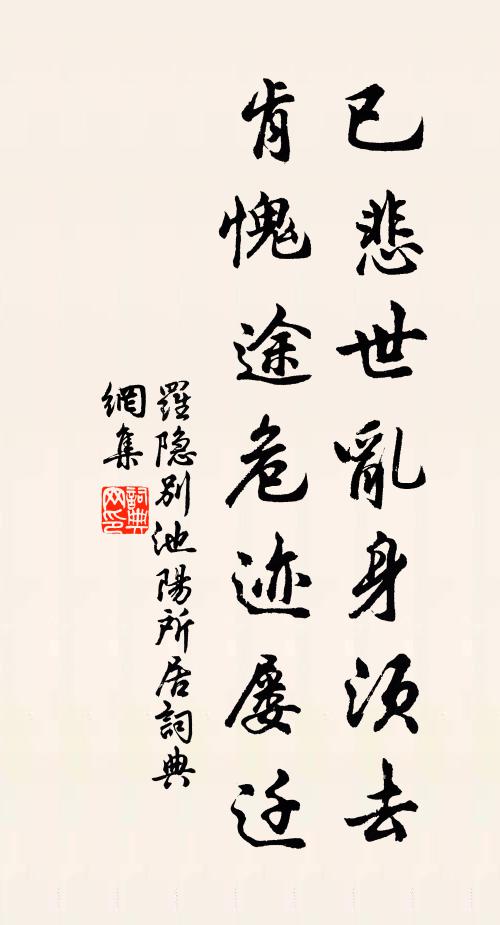 已悲世亂身須去
肯愧途危迹屢迁
羅隐别池陽所居詞典
網集
詞典
网印